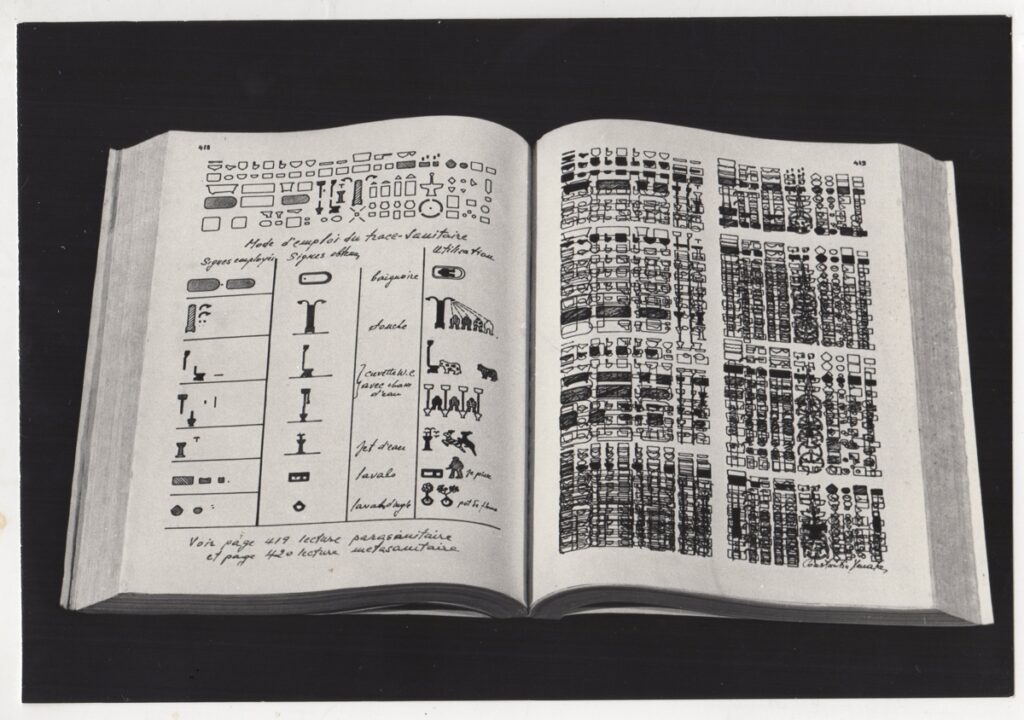 418
Mode d'emploi du trace-sanitaire
Signes employés Signes obtenus Utilisation
baignoire
douche
cuvette W.C
avec chasse
d'eau
Jet d'eau
lavabo
lavabo d'angle
Voir page 419 lecture parasanitaire
et page 420 lecture metasanitaire
419